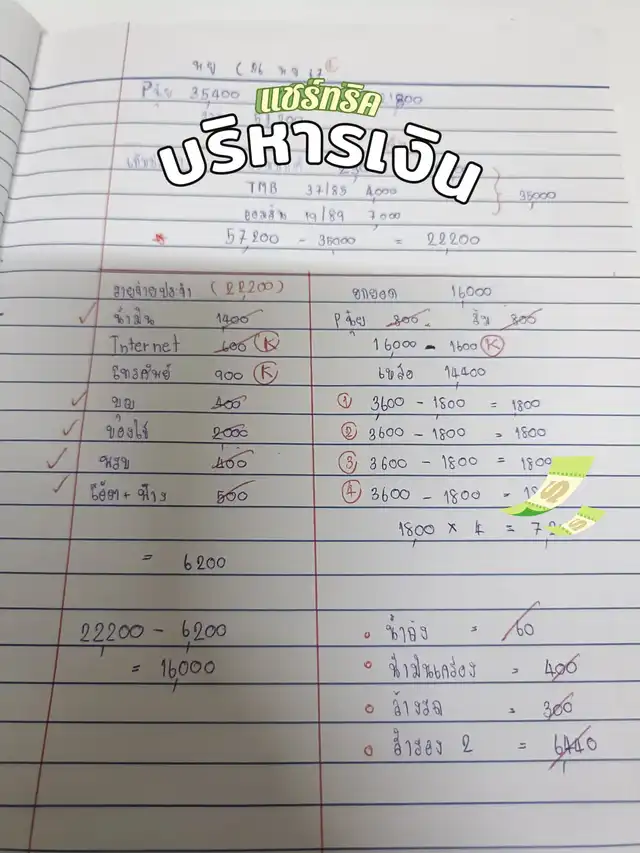 แชร์ทริค
บริหารเงิน
35400
800
TMB 37/89 4,000
ออมสิน 19/89 7,000
35000
57,200 - 35000 = 22,200
รายจ่ายประจำ (22,200)
น้ำมัน 1400
Internet 600 K
โทรศัพท์ 900 K
บุญ 400
ของใช้ 2000
หวย 400
โอ๊ต + ฟาง 500
= 6200
22200 - 6200
= 16000
ยกยอด 16000
P'นุ้ย 800
800
16000 - 1600 K
เหลือ 14400
① 3600 - 1800 = 1800
② 3600 - 1800 = 1800
③ 3600 - 1800 = 1800
④ 3600 - 1800 =
1800 × 4 =
น้ำถัง = 60
น้ำมันเครื่อง = 400
ล้างรถ = 300
สำรอง 2 = 6440